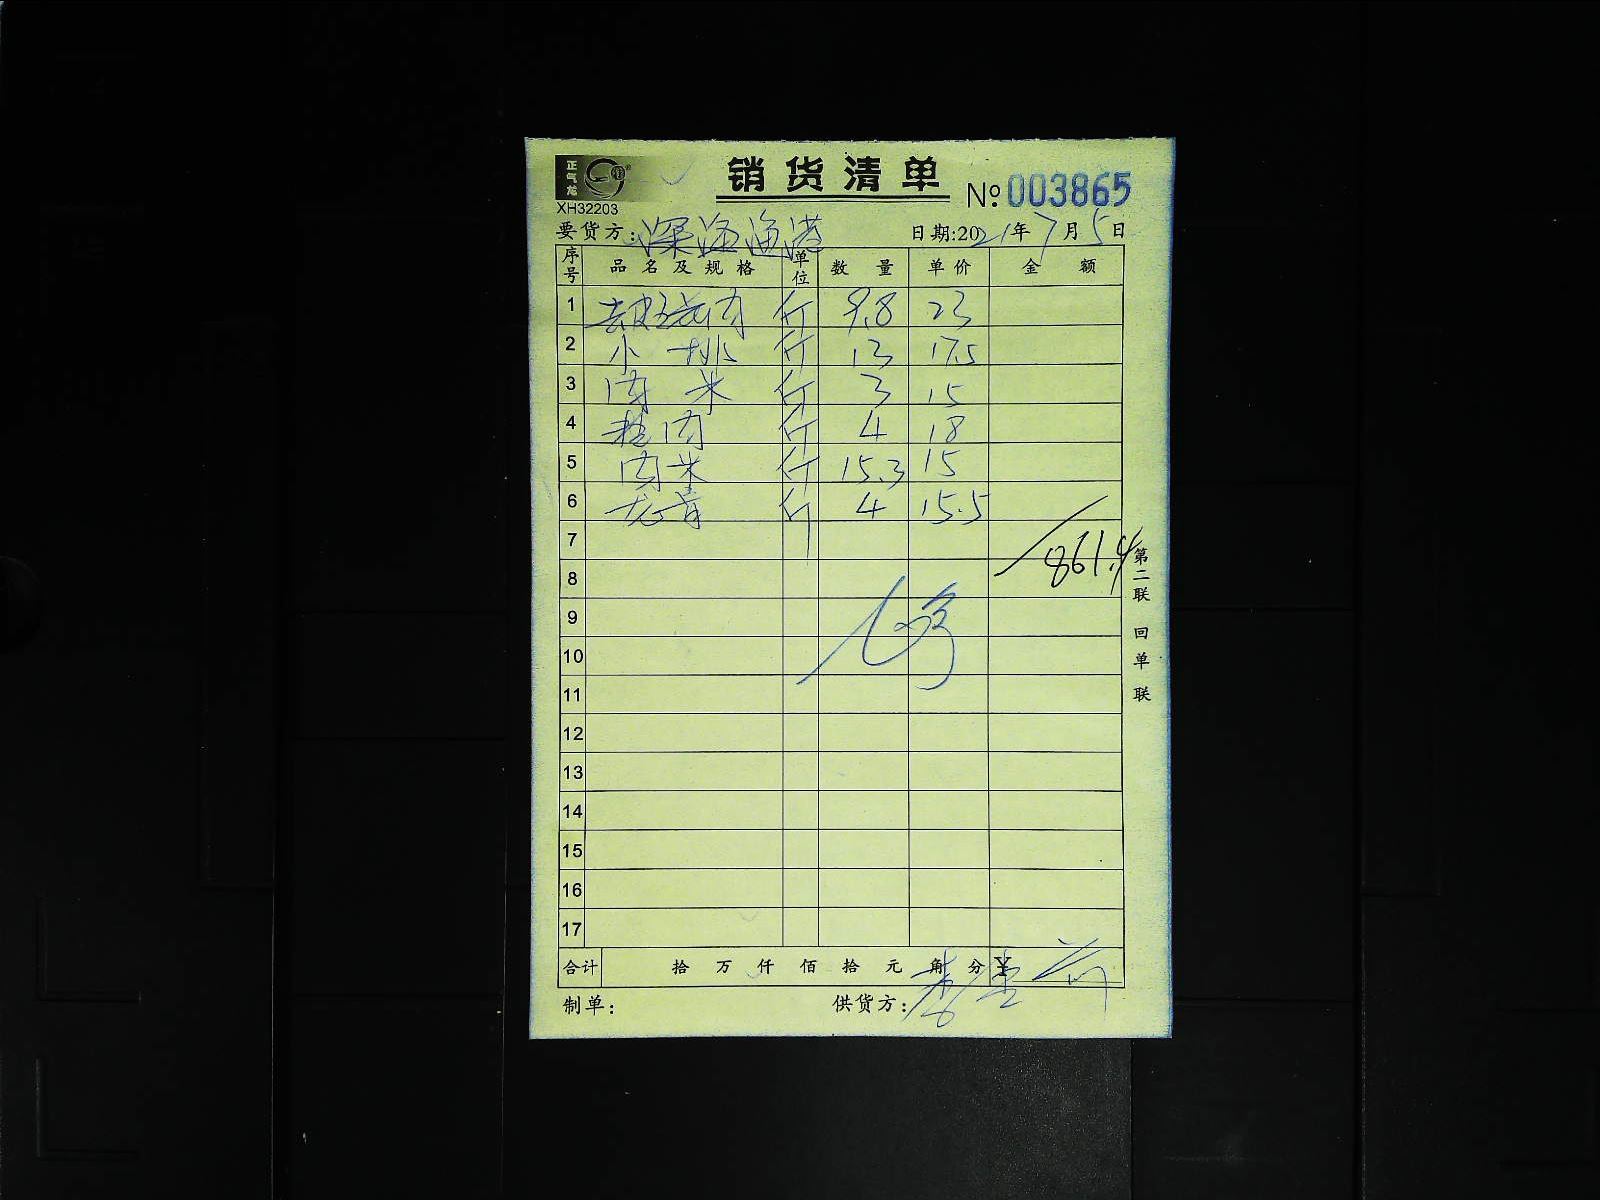 正气龙
销货清单
XH32203
№ 003865
要货方: 深海渔港 日期:2021年7月5日
序号 品名及规格 单位 数量 单价 金额
1 去皮五花肉 斤 9.8 23
2 小排 斤 13 17.5
3 肉米 斤 3 15
4 粒肉 斤 4 18
5 肉米 斤 15.3 15
6 龙骨 斤 4 15.5
7
861.4
8
9
10
11
12
13
14
15
16
17
第二联 回单联
合计 拾 万 仟 佰 拾 元 角 分 ¥
制单: 供货方: